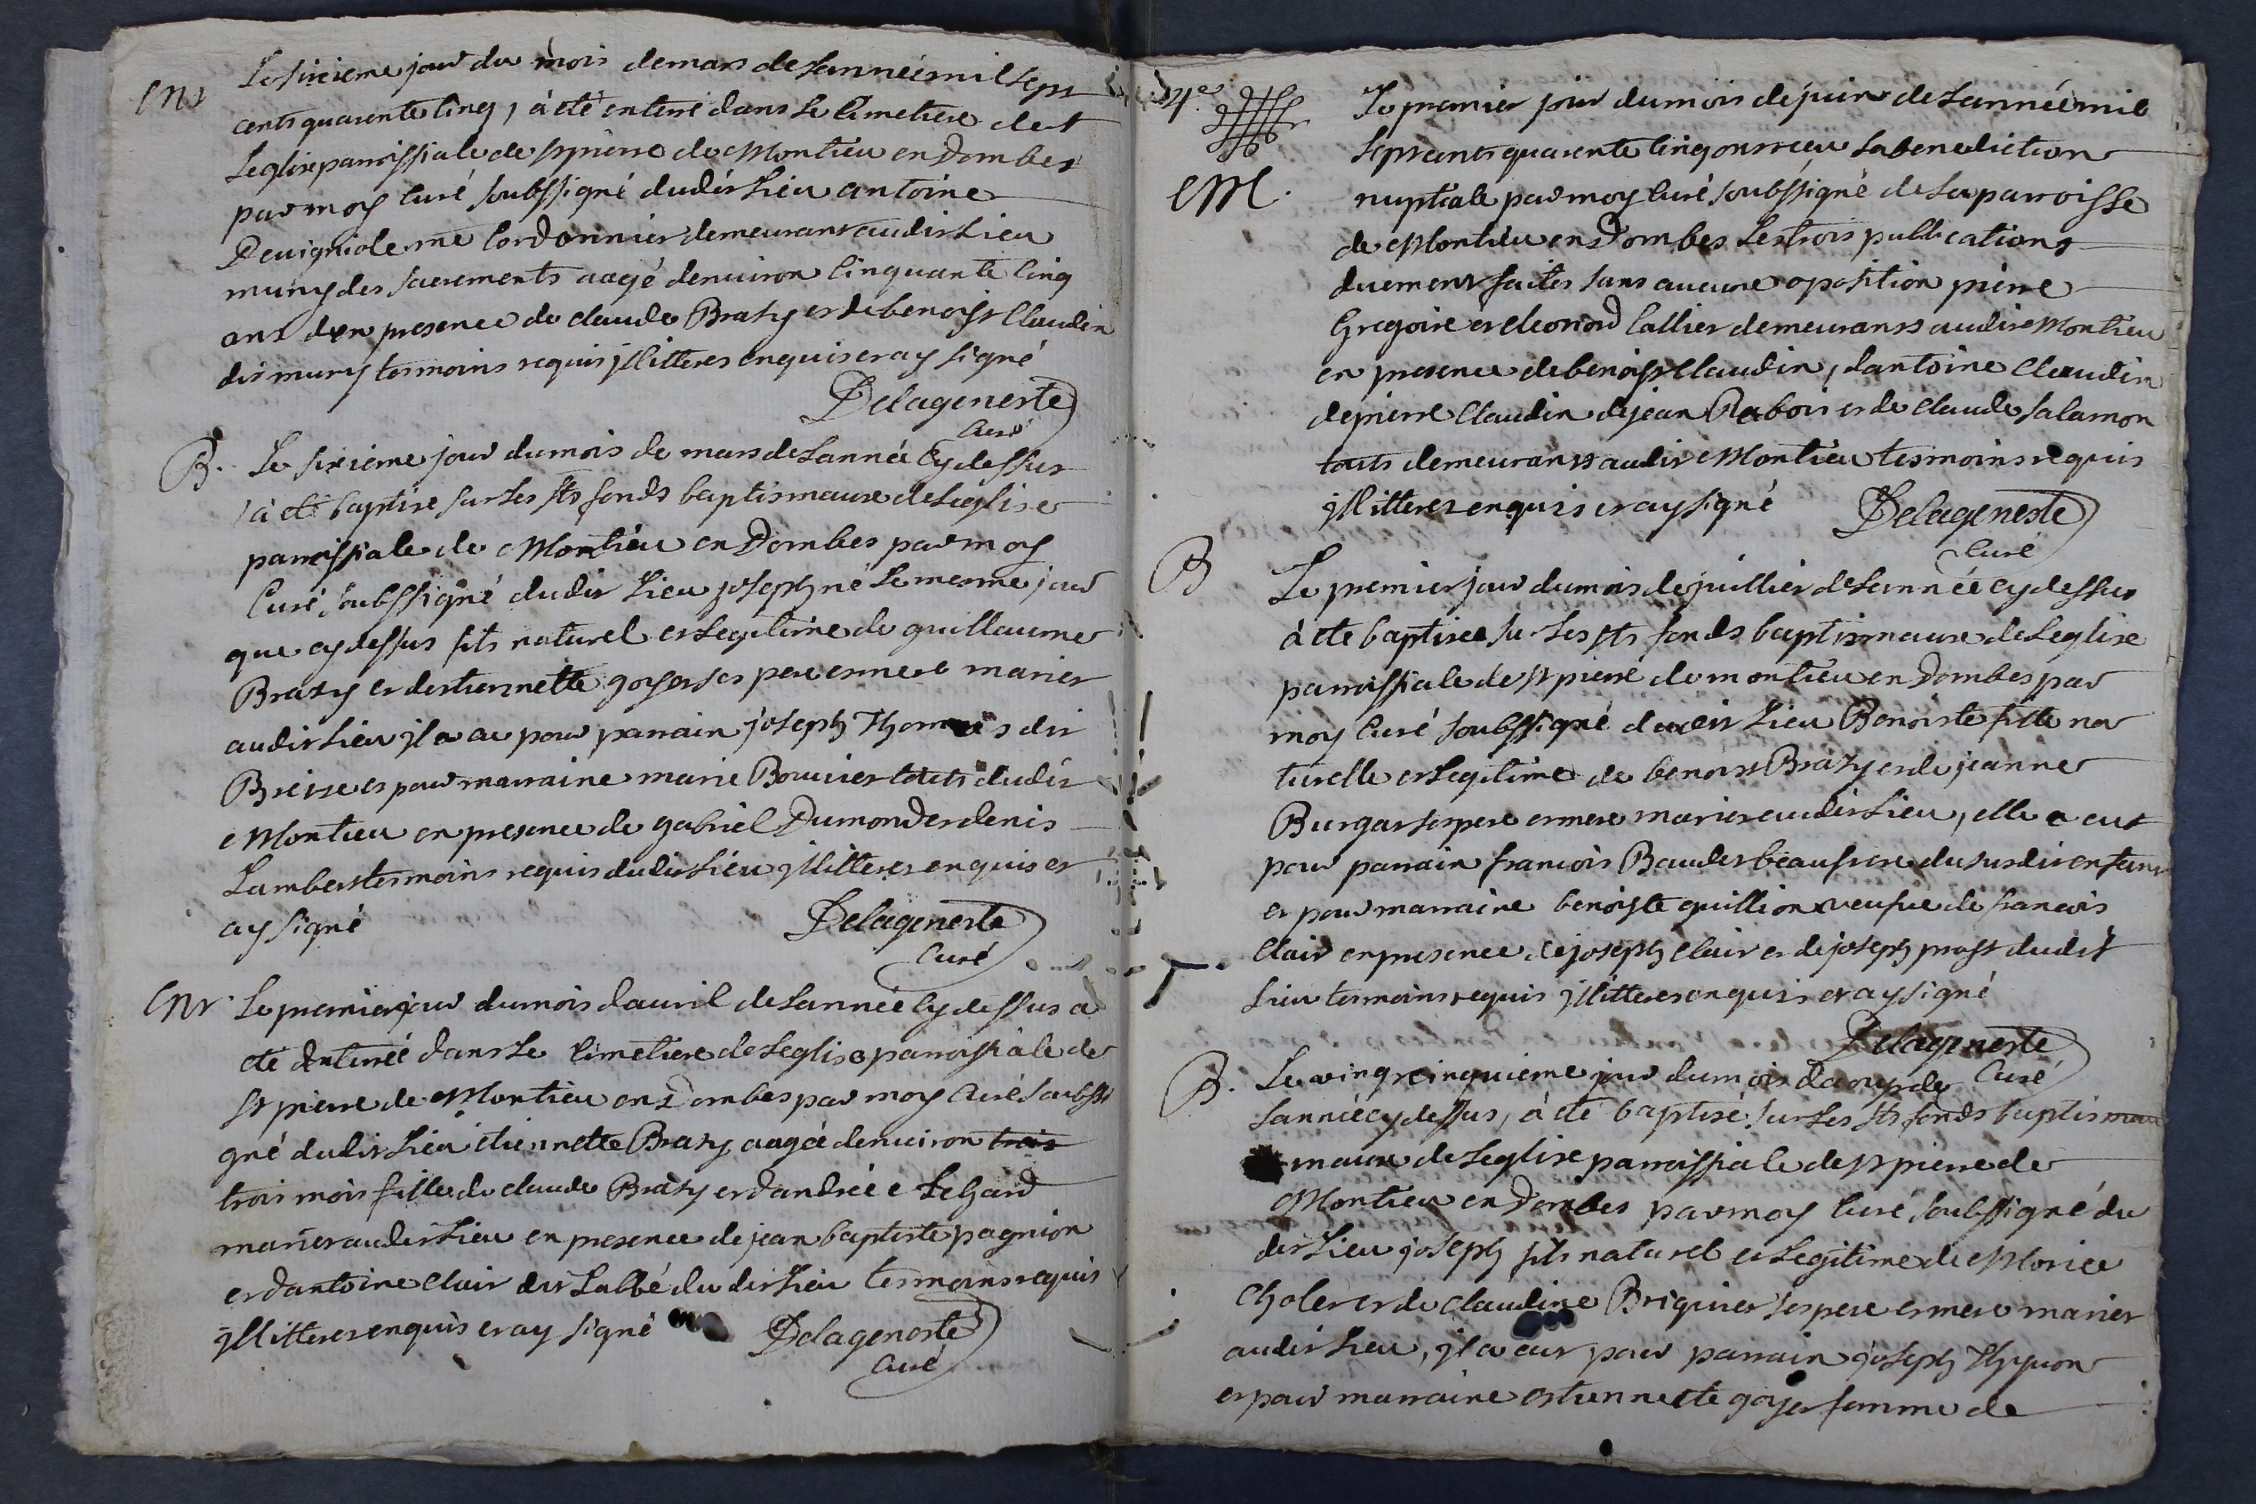 Ent Le sixieme jour du mois de mars de Lannée mil sept
cents quarente cinq, à eté enterré dans Le Cimetiere de
Leglise parroissiale de st pierre de Montieu en Dombes
par moy Curé soubssigné dudit Lieu antoine
Devigniole me Cordonnier demeurant audit Lieu
muny des sacrements aagé denviron Cinquante Cinq
ans en presence de claude Brazy et de benoist Claudin
dit muny tesmoins requis jllitteres enquis et ay signé
Delageneste
Curé
B. Le sixieme jour du mois de mars de Lannée Cy dessus
à eté baptise sur Les sts fonds baptismaux de Leglise
parroissiale de Montieu en Dombes par moy
Curé soubssigné dudit Lieu joseph né Le mesme jour
que cy dessus fils naturel et Legitime de guillaume
Brazy et destiennette goyet ses pere et mere mariés
audit Lieu jl a eu pour parrain joseph Thomas dit
Bresse et pour marraine marie Bouvier touts dudit
Montieu en presence de gabriel Dumond et denis
Lambert tesmoins requis dudit Lieu jllitteres enquis et
ay signé Delageneste
Curé
Ent Le premier jour du mois dauril de Lannée Cy dessus a
eté enterrée dans Le Cimetiere de Leglise parroissiale de
st pierre de Montieu en Dombes par moy Curé soubssi
gné dudit Lieu etiennette Brazy aagée denviron trois
trois mois fille de claude Brazy et dandrée Lehard
mariés audit Lieu en presence de jean baptiste pagnion
et dantoine clair dit Labbé dudit Lieu tesmoins requis
jllitteres enquis et ay signé Delageneste
Curé
4e Le premier jour du mois de juin de Lannée mil
sept cents quarente Cinq ont reçu La benediction
M. nuptiale par moy Curé soubssigné de La parroisse
de Montieu en Dombes Les trois publications
duement faites sans aucune oposition pierre
Gregoire et eleonord Callier demeurants audit Montieu
en presence de benoist Claudin, dantoine Claudin
de pierre Claudin de jean Rabois et de claude salamon
touts demeurants audit Montieu tesmoins requis
jllitteres enquis et ay signé Delageneste
Curé
B Le premier jour du mois de juillier de Lannée cy dessus
à eté baptisée su Les sts fonds baptismaux de Leglise
parroissiale de st pierre de montieu en Dombes par
moy Curé soubssigné dudit Lieu Benoiste fille na
turelle et Legitime de benoist Brazy et de jeanne
Burgat ses pere et mere mariés audit Lieu, elle a eut
pour parrain francois Baudet beaufrere du susdit enfant
et pour marraine benoiste quillion veufue de francois
Clair en presence de joseph Clair et de joseph prost dudit
Lieu tesmoins requis jllitteres enquis et ay signé
Delageneste
Curé
B. Le vingt cinquieme jour du mois daoust de
Lannée cy dessus, à eté baptisé sur Les sts fonds baptis
maux de Leglise parroissiale de st pierre de
Montieu en Dombes par moy Curé soubssigné du
dit Lieu joseph fils naturel et Legitime de Morice
Cholet et de claudine Briquier ses pere et mere mariés
audit Lieu, jl a eut pour parrain joseph
et pour marraine estiennette goyet femme de